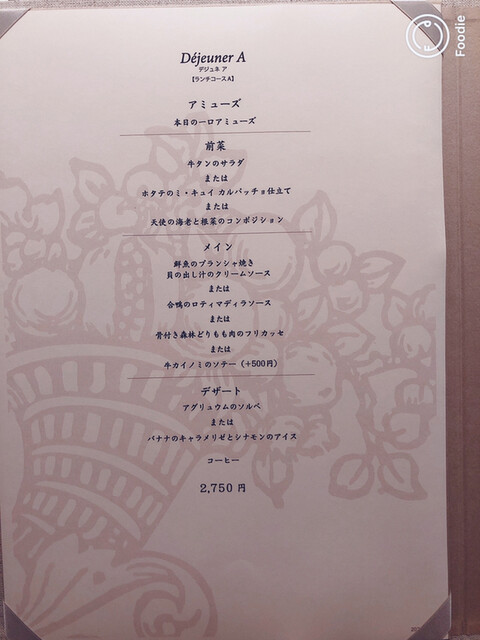 Déjeuner A
デジュネ ア
【ランチコースA】
アミューズ
本日の一口アミューズ
前菜
牛タンのサラダ
または
ホタテのミ・キュイ カルパッチョ仕立て
または
天使の海老と根菜のコンポジション
メイン
鮮魚のプランシャ焼き
貝の出し汁のクリームソース
または
合鴨のロティマディラソース
または
骨付き森林どりもも肉のフリカッセ
または
牛カイノミのソテー(+500円)
デザート
アグリュウムのソルベ
または
バナナのキャラメリゼとシナモンのアイス
コーヒー
2,750 円
Foodie